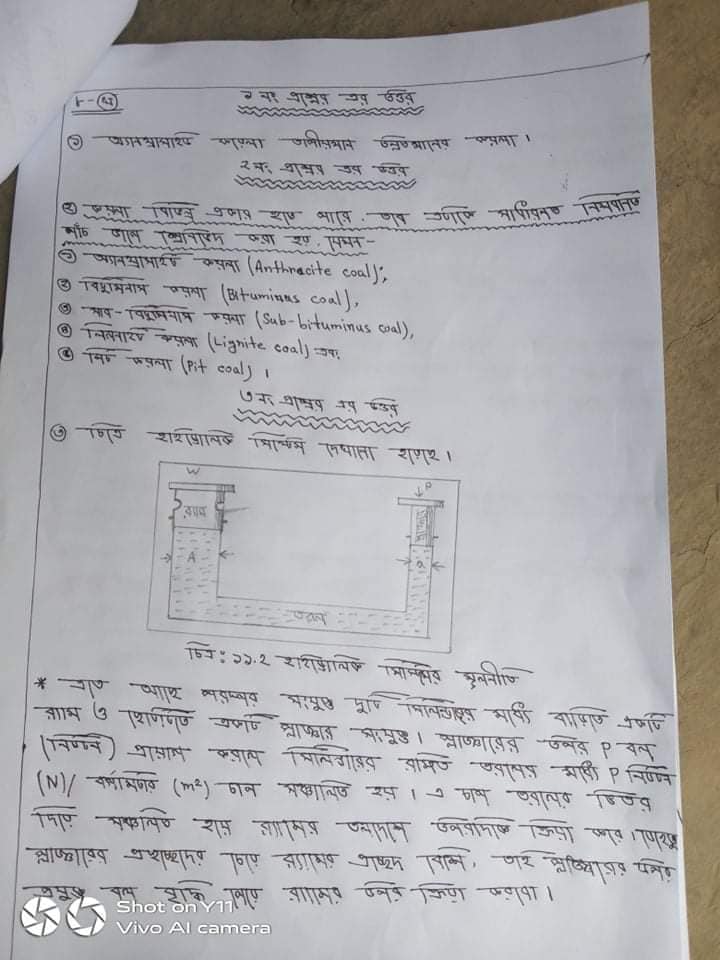 ১ নং প্রশ্নের এর উত্তর
① অ্যানথ্রাসাইট কয়লা উন্নতমানের কয়লা।
২ নং প্রশ্নের এর উত্তর
② কয়লা বিভিন্ন প্রকার হতে পারে। তবে এটাকে সাধারনত নিম্নবর্নিত
পাঁচ ভাগে করা হয়. যেমন-
① অ্যানথ্রাসাইট কয়লা (Anthracite coal);
② বিটুমিনাস কয়লা (Bituminus coal),
③ সাব-বিটুমিনাস কয়লা (Sub-bituminus coal),
④ লিগনাইট কয়লা (Lignite coal) এবং
⑤ পিট কয়লা (Pit coal)।
৩ নং প্রশ্নের এর উত্তর
③ চিত্রে হাইড্রোলিক সিস্টেম দেখানো হয়েছে।
W
P
র‍্যাম
A
a
তরল
চিত্র: ১১.২ হাইড্রোলিক সিস্টেমের মূলনীতি
* এতে আছে পরস্পর সংযুক্ত দুটি সিলিন্ডার মধ্যে বাড়তি একটি
র‍্যাম ও ছোটটিতে একটি প্লাঞ্জার সংযুক্ত। প্লাঞ্জারের উপর P বল
(নিউটন) প্রয়োগ করলে সিলিন্ডারের রক্ষিত তরলের মধ্যে P নিউটন
(N)/ বর্গমিটার (m²) চাপ সঞ্চালিত হয়। এ চাপ তরলের ভিতর
দিয়ে সঞ্চালিত হয়ে র‍্যামের তলদেশে উপরদিকে ক্রিয়া করে। যেহেতু
প্লাঞ্জারের প্রস্থচ্ছেদের চেয়ে র‍্যামের প্রচ্ছেদ বেশি, তাই উপর
প্রযুক্ত বল বৃদ্ধি পেয়ে র‍্যামের উপর ক্রিয়া করবে।
Shot on Y11
Vivo AI camera